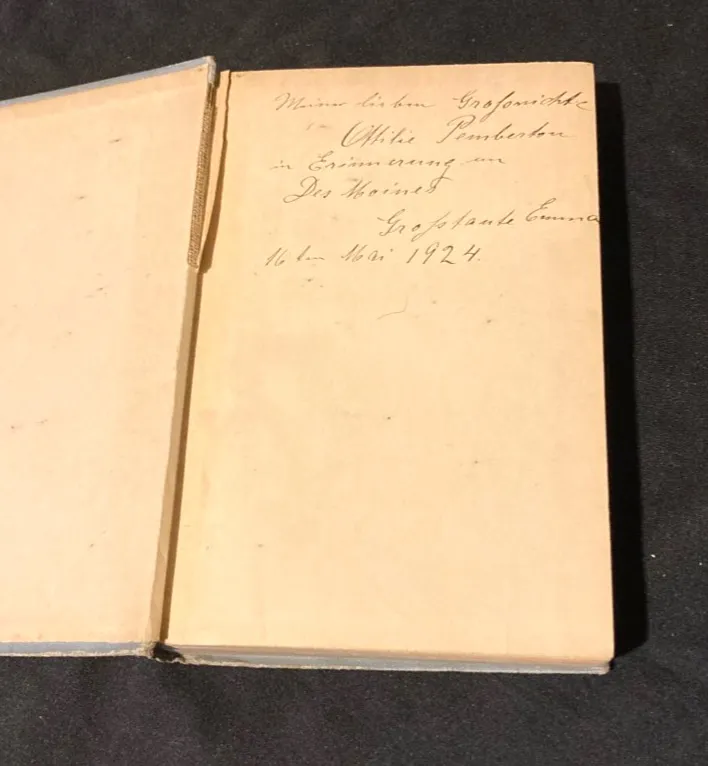 Meiner lieben Großnichte
Ottilie Pemberton
in Erinnerung an
Des Moines
Großtante Emma
16ten Mai 1924.